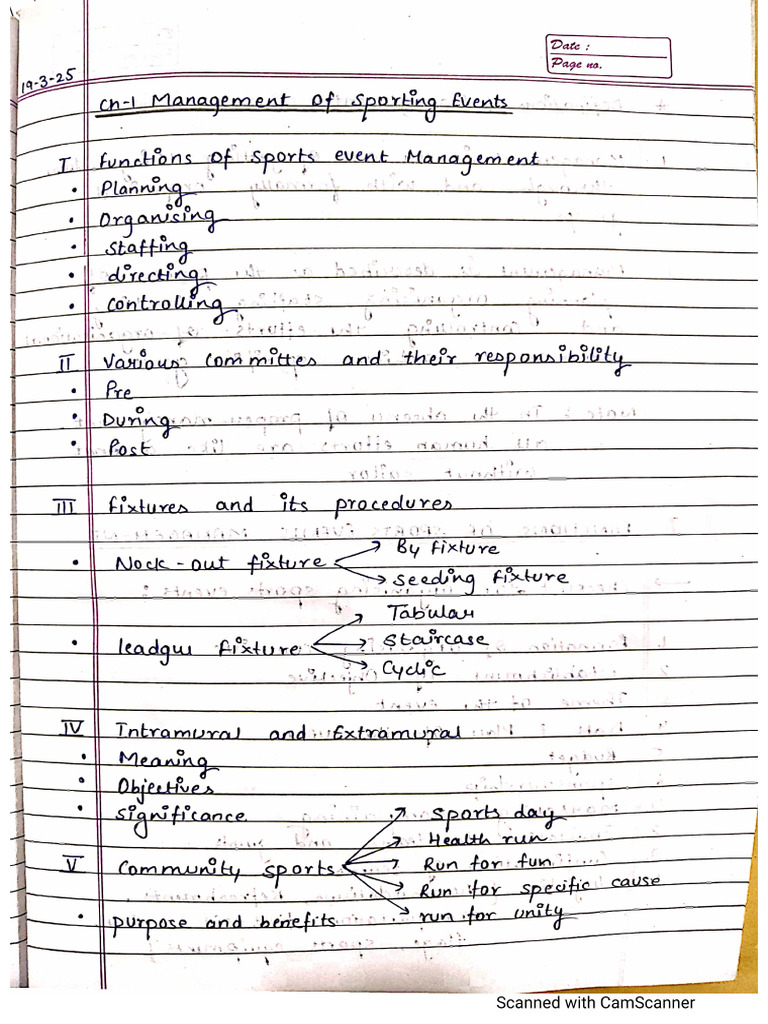 Date :
Page no.
19-3-25
Ch-1 Management of Sporting Events
I functions of sports event Management
• Planning
• Organising
• Staffing
• directing
• Controlling
II Various Committes and their responsibility
• Pre
• During
• Post
III fixtures and its procedures
• Nock-out fixture
By fixture
Seeding fixture
• leadgus fixture
Tabular
Staircase
Cyclic
IV Intramural and Extramural
• Meaning
• Objectives
• Significance
V Community sports
Sports day
Health run
Run for fun
Run for specific cause
run for unity
• purpose and benefits
Scanned with CamScanner